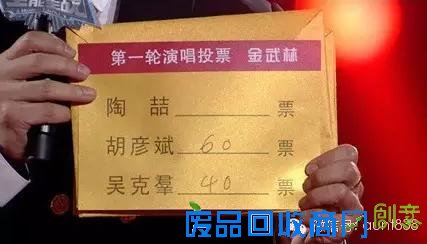 第一轮演唱投票 金武林
陶 喆 票
胡彦斌 60 票
吴克羣 40 票
创业
废品回收商网
aunt888